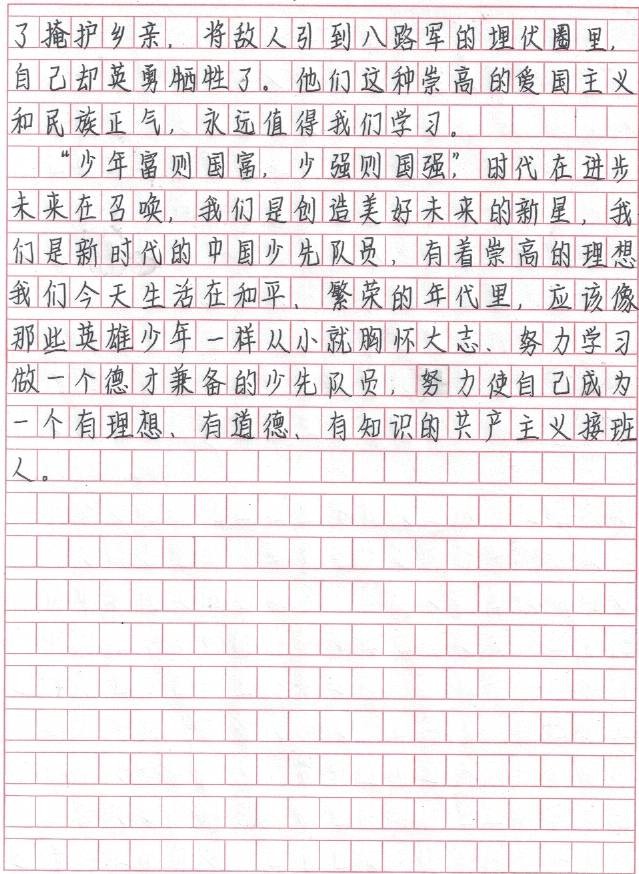 了掩护乡亲，将敌人引到八路军的埋伏圈里，
自己却英勇牺牲了。他们这种崇高的爱国主义
和民族正气，永远值得我们学习。
“少年富则国富，少强则国强”，时代在进步
未来在召唤，我们是创造美好未来的新星，我
们是新时代的中国少先队员，有着崇高的理想
我们今天生活在和平、繁荣的年代里，应该像
那些英雄少年一样从小就胸怀大志、努力学习
做一个德才兼备的少先队员，努力使自己成为
一个有理想、有道德、有知识的共产主义接班
人。